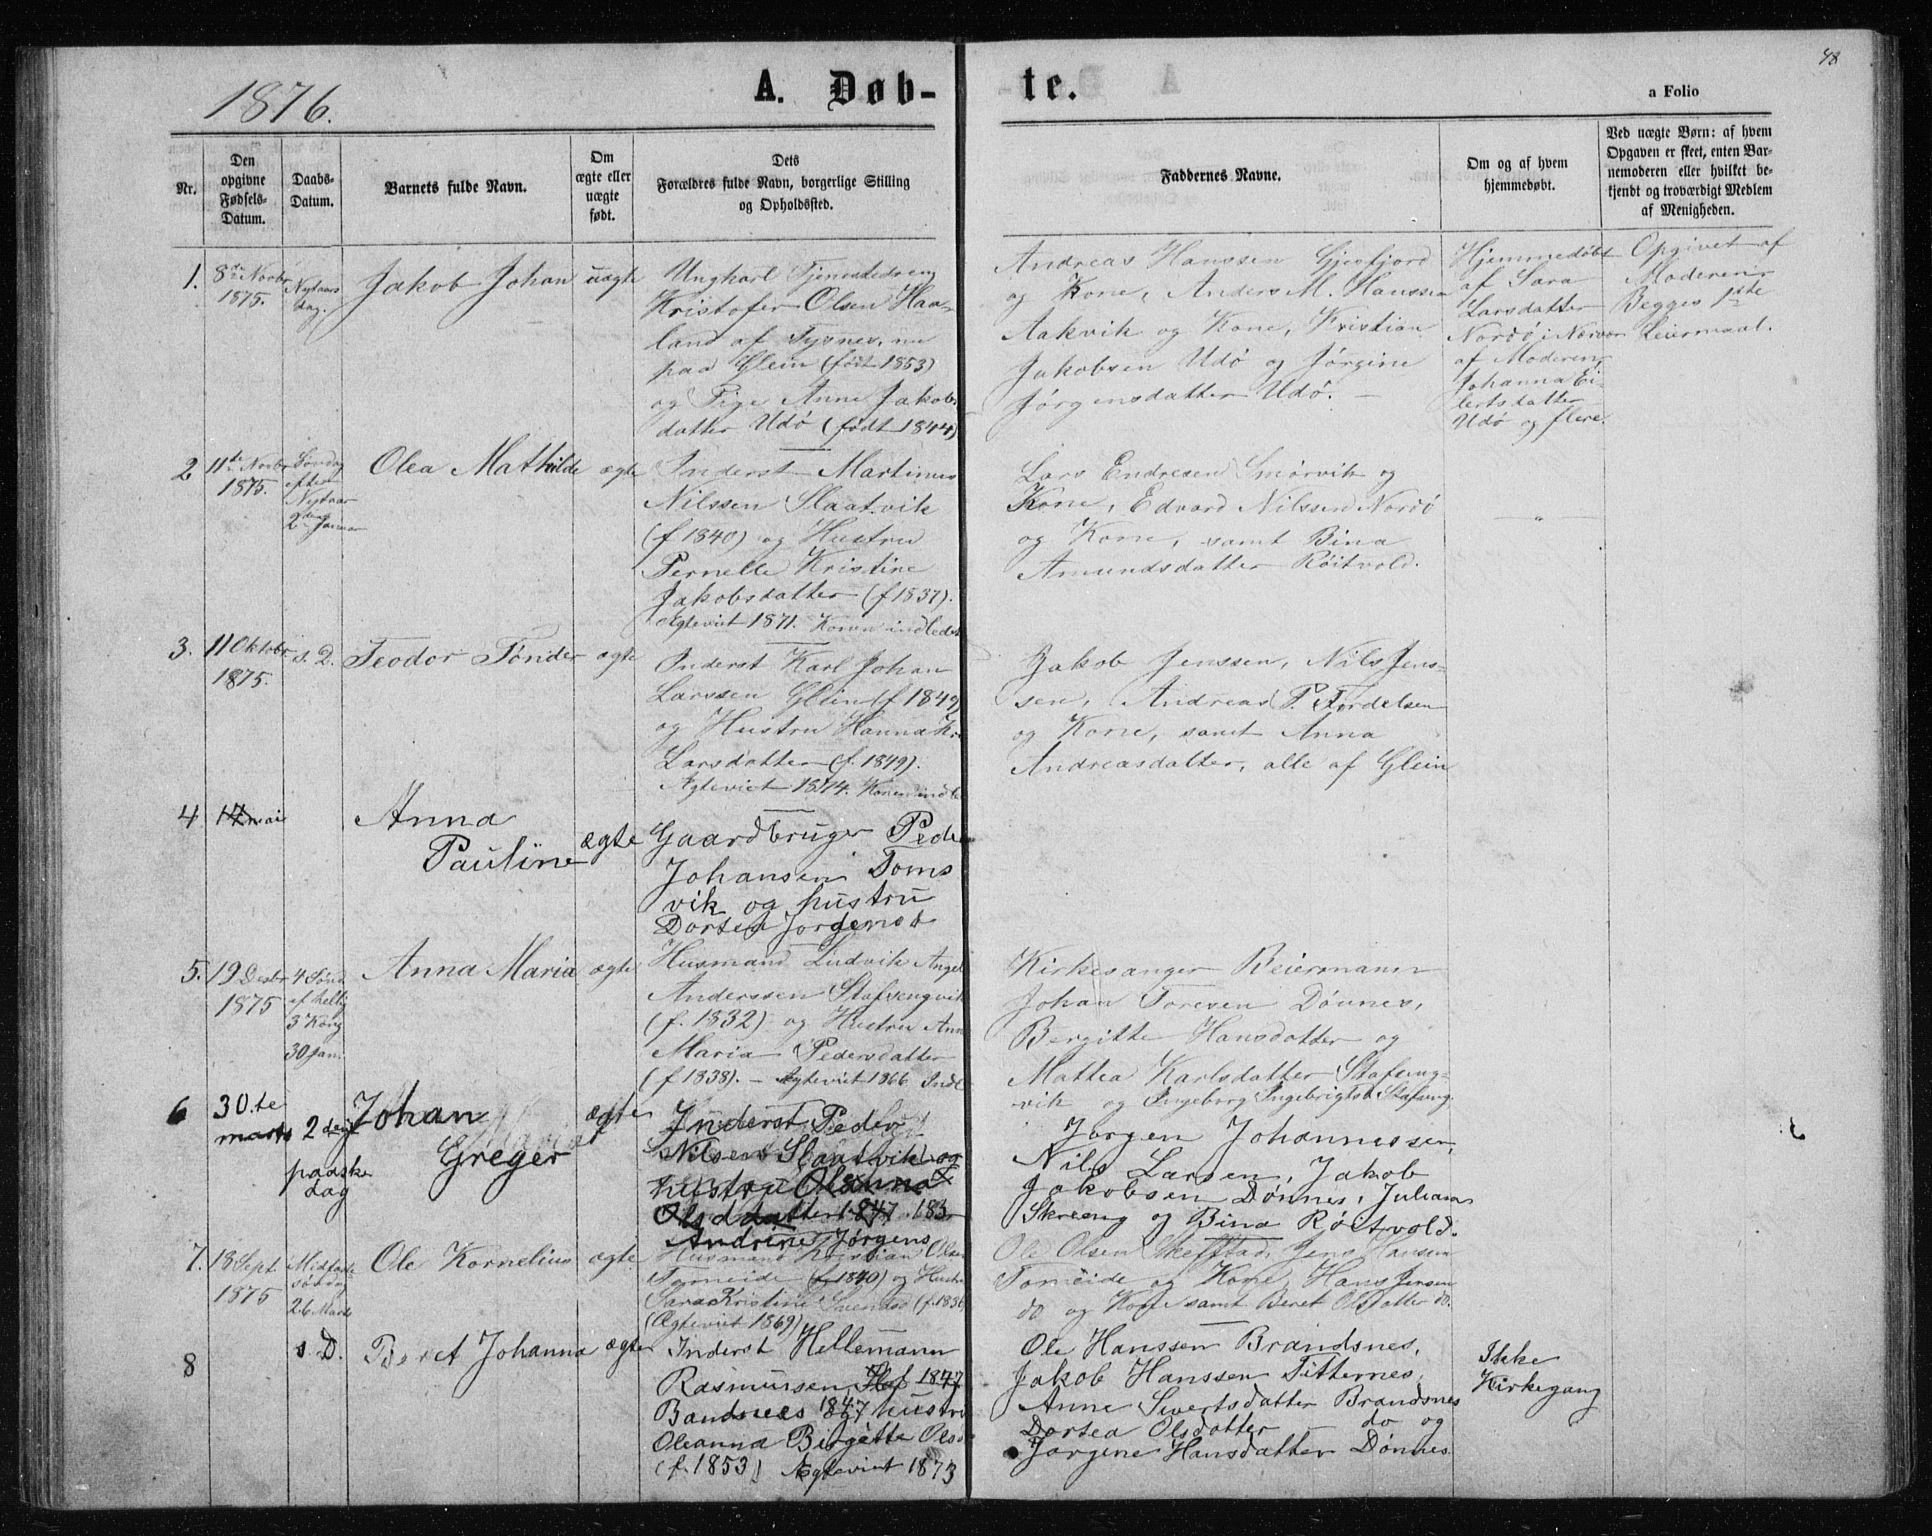 48
1876.
A. Døb-
te.
a Folio
Nr.
Den
opgivne
Fødsels-
Datum.
Daabs-
Datum.
Barnets fulde Navn.
Om
ægte eller
uægte
født.
Dets
Forældres fulde Navn, borgerlige Stilling
og Opholdssted.
Faddernes Navne.
Om og af hvem
hjemmedøbt.
Ved uægte Børn: af hvem
Opgaven er skeet, enten Bar-
nemoderen eller hvilket be-
kjendt og troværdigt Medlem
af Menigheden.
1.
8de Novbr
1875.
Nytaars
dag.
Jakob Johan
uægte
Ungkarl Tjenestedreng
Kristofer Olsen Haa-
land af Tysnes, nu
paa Glein (født 1853)
og Pige Anne Jakobs
datter Udö (født 1844)
Andreas Hanssen Gjesfjord
og Kone, Anders M. Hanssen
Aakvik og Kone, Kristian
Jakobsen Udö og Jörgine
Jörgensdatter Udö. —
Hjemmedøbt
af Sara
Larsdatter
Nordö i Nærvær
af Moderen,
Johanna Ei-
lertsdatter
Udö og flere.
Opgivet af
Moderen
Begges 1ste
Leiermaal.
2
11te Novbr
1875.
Søndag
efter
Nytaar
2den Januar
Olea Mathilde
ægte
Inderst Martinus
Nilssen Slaatvik
(f 1840) og Hustru
Pernelle Kristine
Jakobsdatter (f 1837).
Ægteviet 1871. Konen indledet
Lars Endresen Smörvik og
Kone, Edvard Nilssen Nordö
og Kone, samt Bina
Amundsdatter Röitvold.
— " —
3.
11 Oktobr
1875.
s. D.
Teodor Tönder
ægte
Inderst Karl Johan
Larssen Glein (f 1849)
og Hustru Hanna Kr
Larsdatter (f. 1849).
Ægteviet 1874. Konen indle
Jakob Jenssen, Nils Jens-
sen, Andreas P. Fordelsen
og Kone, samt Anna
Andreasdatter, alle af Glein
4
17 mai
Anna
Pauline
ægte
Gaardbruger Peder
Johansen Toms
vik og hustru
Dortea Jorgensd
5.
19 Desbr
1875
4 Sønd
ef hellig
3 Kong
30 Jan.
Anna Maria
ægte
Husmand Ludvik Angel
Anderssen Stafsengvik
(f. 1832) og Hustru Anne
Maria Pedersdatter
(f 1838). — Ægteviet 1866. Indl
Kirkesanger Beiermann
Johan Toresen Dönnes,
Bergitte Hansdatter og
Mattea Karlsdatter Stafseng-
vik og Ingeborg Ingebrigtsd Stafseng.
6
30.te
marts
2 den
paaske
dag
Johan
Greger
ægte
Inderst Peder
Nilsen Slaatvik og
hustru Olianna
Olsdatter 1847 183
Andrine Jørgens
Jørgen Johannessen,
Nils Larsen, Jakob
Jakobsen Dønnes, Julian
Skreeng og Bina Røitvold.
7.
18 Sept.
1875
Midfaste
søndag
26 Marts
Ole Kornelius
ægte
Husmand Kristian Olsen
Tomeide (f 1840) og Hustru
Sara Kristine Svendsd (f. 1836
(Ægteviet 1869)
Ole Olsen Skeffstad, Jens Hansen
Tomeide og Kone, Hans Jensen
do og Kone samt Beret Olsdatter do.
8
s. D.
Beret Johanna
ægte
Inderst Hellemann
Rasmussen 1847
Bandnees 1847 hustru
Oleanna Birgette Olsd
(f. 1853) Ægteviet 1873
Ole Hanssen Brandsnes,
Jakob Hanssen Titternes,
Anne Sivertsdatter Brandsnes
Dortea Olsdatter — do og
Jørgine Hansdatter Dønnes
Ikke
Kirkegang